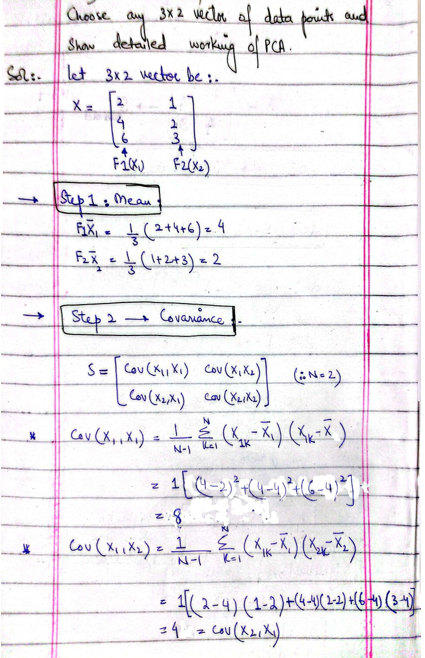 Choose any 3x2 vector of data points and
show detailed working of PCA.
Sol:. let 3x2 vector be :.
X = [2 1
4 2
6 3]
F1(X₁) F2(X₂)
→ Step 1 : Mean :
F1 X̄₁ = 1/3 (2+4+6) = 4
F2 X̄₂ = 1/3 (1+2+3) = 2
→ Step 2 → Covariance :.
S = [Cov(X₁,X₁) Cov(X₁X₂)
Cov(X₂,X₁) Cov(X₂,X₂)] (∵ N=2)
* Cov(X₁,X₁) = 1/N-1 Σ_{k=1}^{N} (X₁ₖ - X̄₁) (X₁ₖ - X̄)
= 1[(4-2)² + (4-4)² + (6-4)²]
= 8
* Cov(X₁,X₂) = 1/N-1 Σ_{k=1}^{N} (X₁ₖ - X̄₁) (X₂ₖ - X̄₂)
= 1[(2-4) (1-2) + (4-4)(2-2) + (6-4) (3-4)]
= 4 = Cov(X₂,X₁)